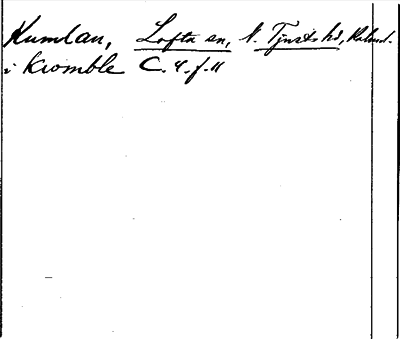 Kumlan, Lofta sn, N. Tjusts hd, Kalmar.
i Kromble C. 4. f. 11